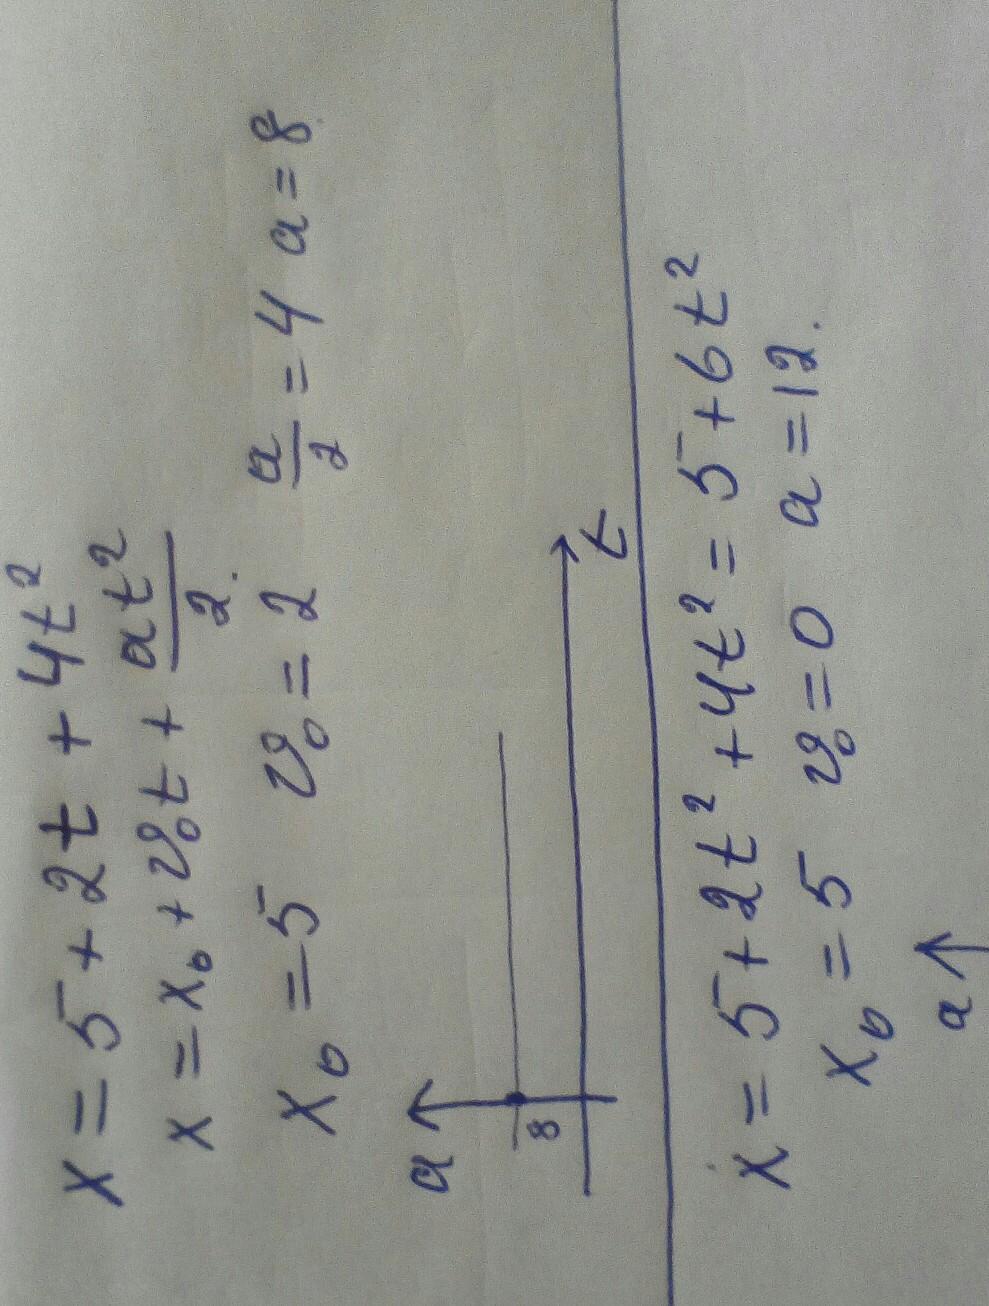 x = 5 + 2t + 4t²
x = x₀ + v₀t + at²/2.
x₀ = 5 v₀ = 2 a/2 = 4 a = 8
a
8
t
x = 5 + 2t² + 4t² = 5 + 6t²
x₀ = 5 v₀ = 0 a = 12.
a